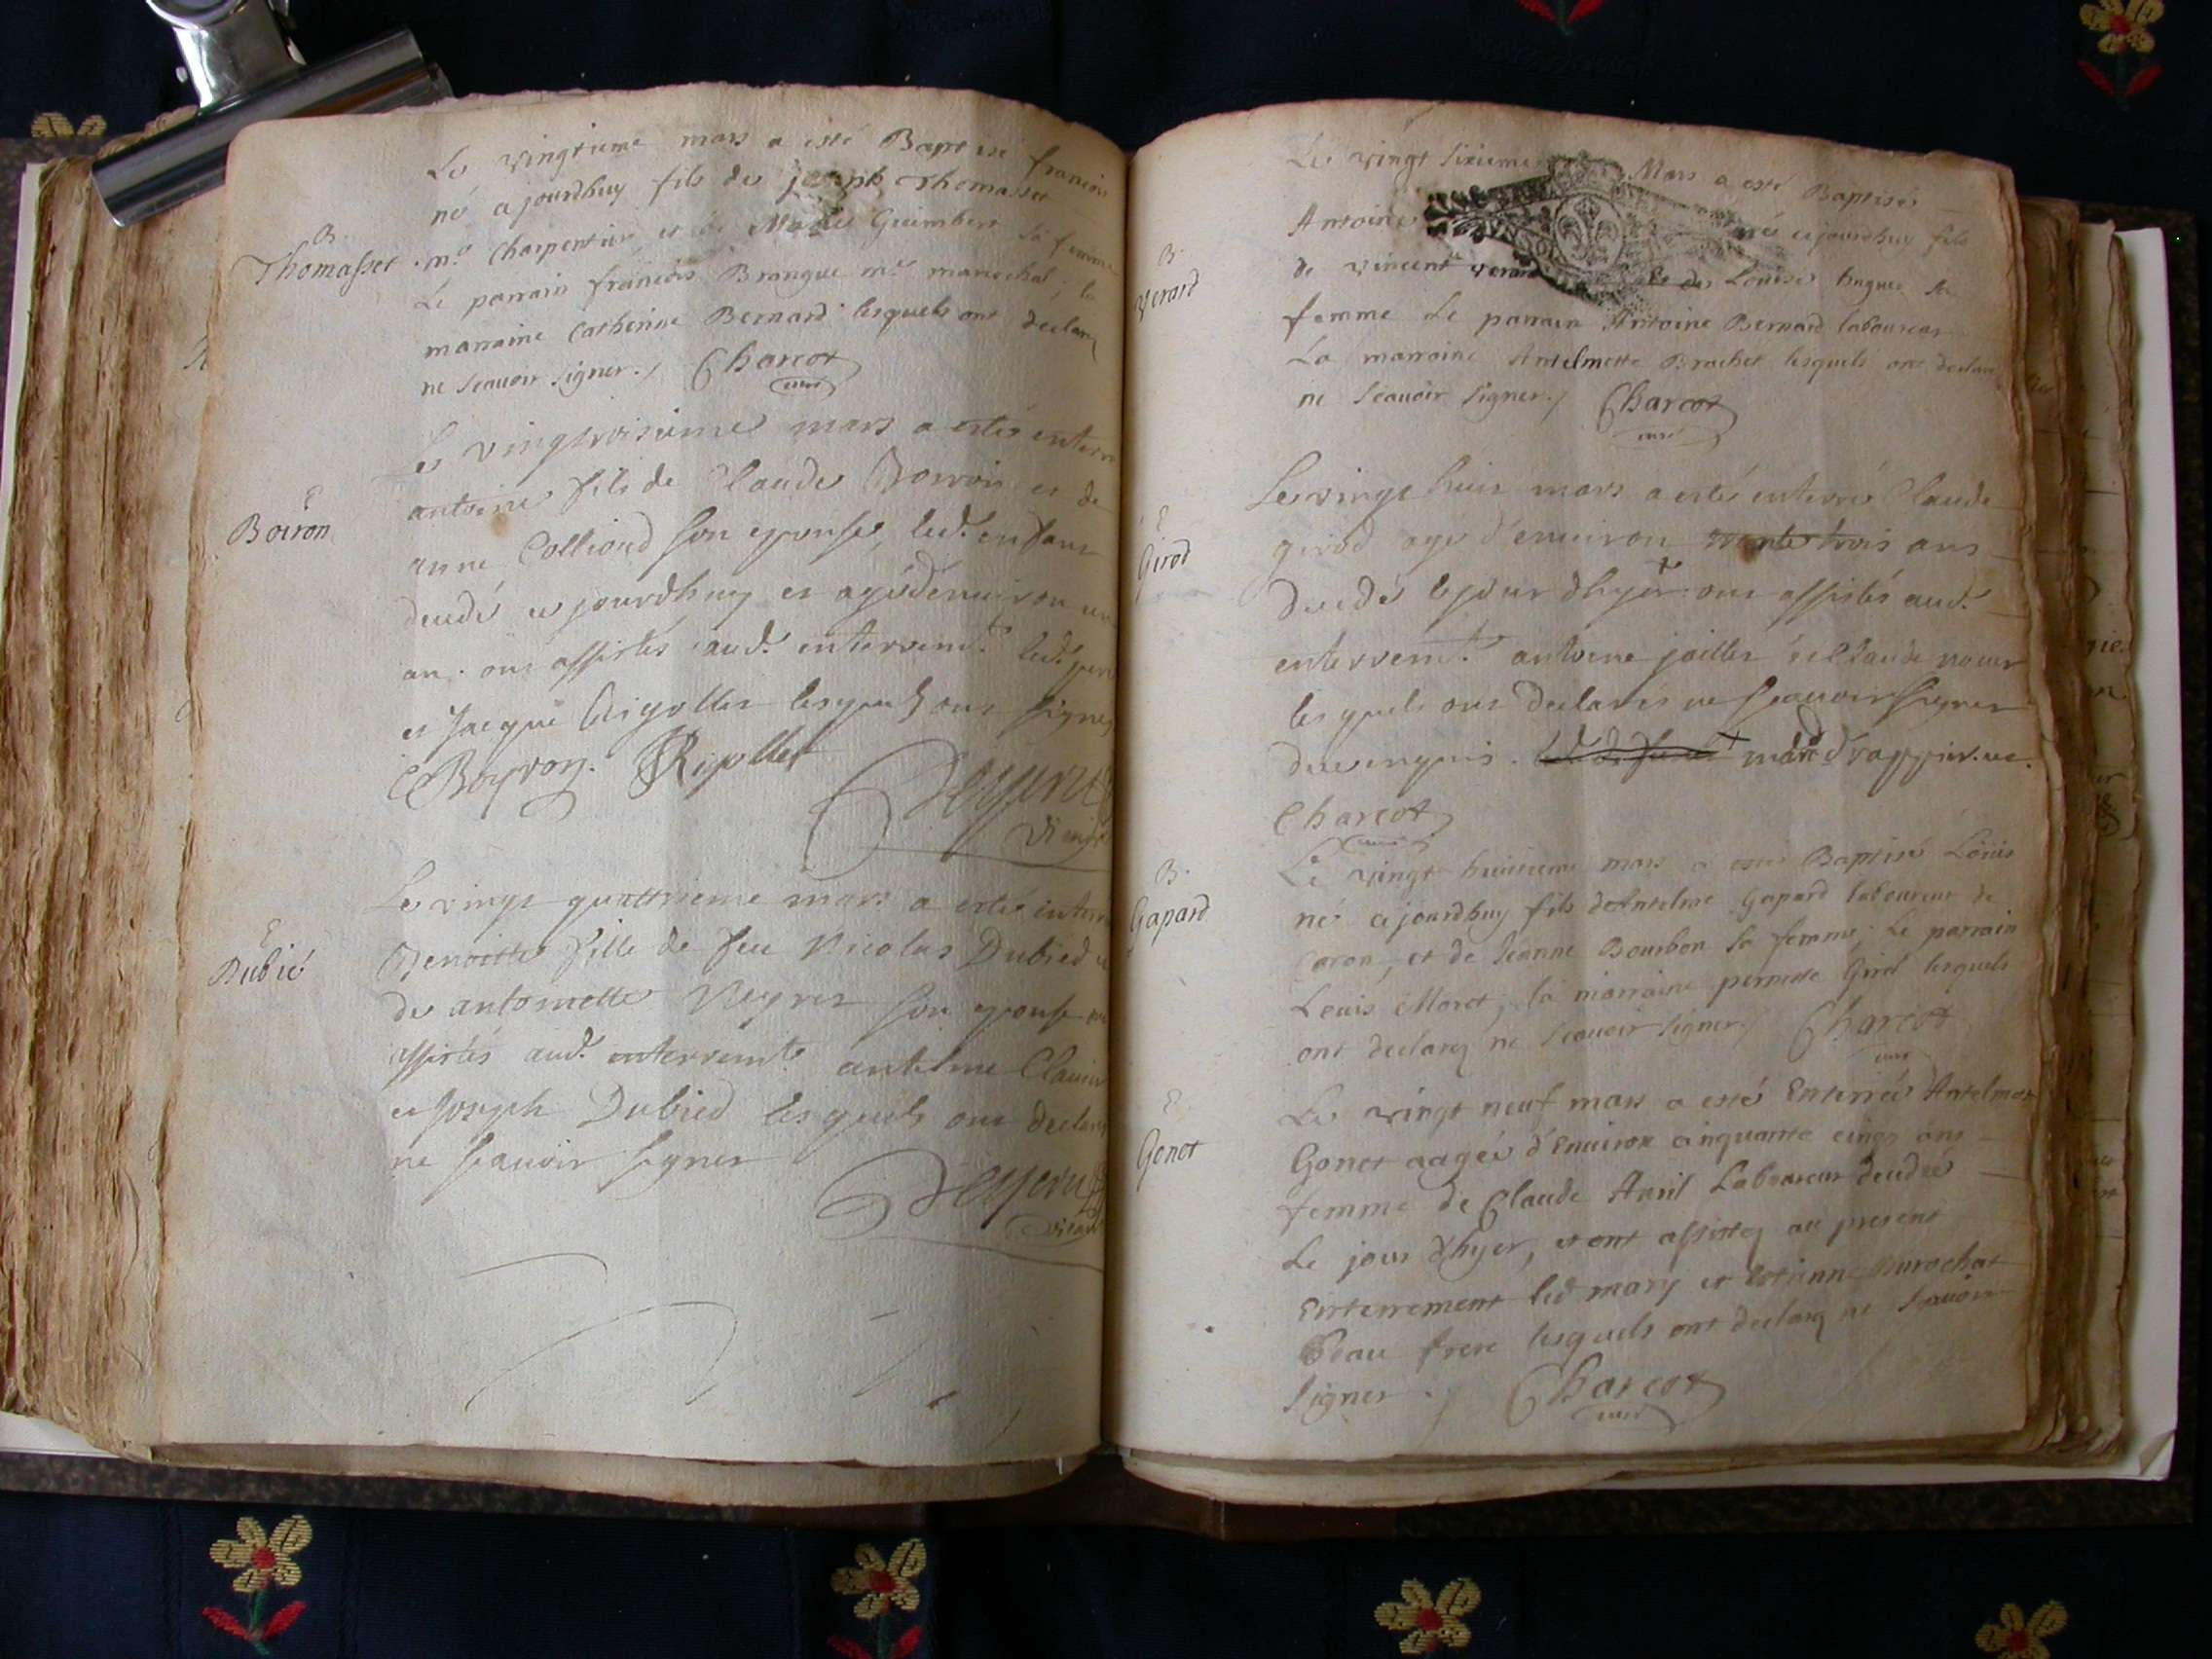 Le vingtieme mars a esté Baptisé francois
né ajourdhuy fils de joseph Thomasset
B.
Thomasset
m.e Charpentier et de Marie Guimbert sa femme
Le parrain francois Brangue m.e marechal, la
marraine Catherine Bernard lesquels ont declarez
ne scauoir signer./. Charcot
curé
Le vingtroisieme mars a estés enterré
E
Boiron
antoine fils de Claude Boiron et de
anne Colliond son epouse, led. enfans
decedé ce jourdhuy et agé d'enuiron un
an. ons assistés aud. enterremt. led. pere
et Jacque Rigollet lesquels ons signes
CBoyron. JRigollet
vicaire
Le vingt quattrieme mars a esté enterré
E
Dubié
Benoitte fille de feu Nicolas Dubied et
de antoinette Neyret son epouse ons
assistés aud. enterremt. antelme Clauier
et Joseph Dubied lesquels ons declares
ne scauoir signer
vicaire
Le vingt sixieme Mars a esté Baptisé
Antoine né cejourdhuy fils
B.
Verard
de vincent verard et de Louise hugues sa
femme Le parrain Antoine Bernard laboureur
La marraine Antelmette Brachet lesquels ont declarez
ne scauoir signer./ Charcot
curé
Le vingt huit mars a esté enterré Claude
E
Girod
girod agé d'enuiron trente trois ans
decedé le jour d'hyer + ons assistés aud.
enterremt. antoine jaillet et Claude
lesquels ons declarés ne scauoir signer
de ce enquis. + mard
Charcot
curé
Le vingt huitieme mars a esté Baptisé Loüis
B.
Gapard
né cejourdhuy fils dAntelme Gapard laboureur de
Caron, et de Jeanne Bourbon sa femme; Le parrain
Louis Moret, la marraine pernette Girel lesquels
ont declarez ne scauoir signer./ Charcot
curé
Le vingt neuf mars a esté Enterrée Antelmette
E.
Gonet
Gonet aagée d'Enuiron cinquante cinq ans
femme de Claude Auril Laboureur decedée
Le jour d'hyer, et ont assistez au present
Enterrement led mary et Estienne Durochat
Beau frere lesquels ont declarez ne scauoir
signer./ Charcot
curé